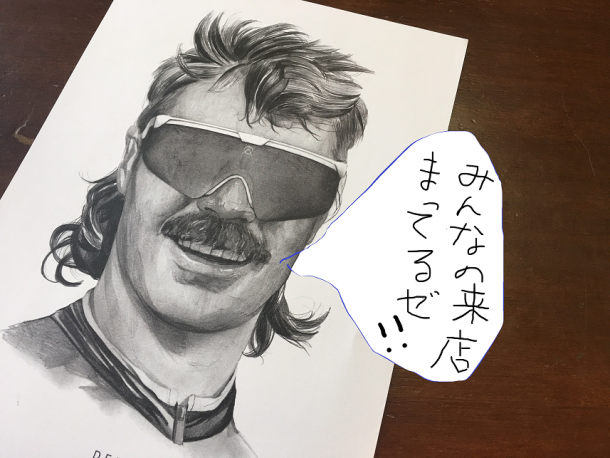 みんなの来店
まってるゼ!!